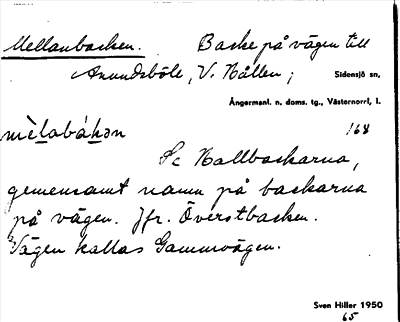 Mellanbacken. Backe på vägen till
Anundsböle, V. Nällen; Sidensjö sn,
Ångermanl. n. doms. tg., Västernorrl, l.
mèlabákən 168
Se Hallbackarna,
gemensamt namn på backarna
på vägen. Jfr. Överstbacken.
Vägen kallas Gammvägen.
Sven Hiller 1950
65